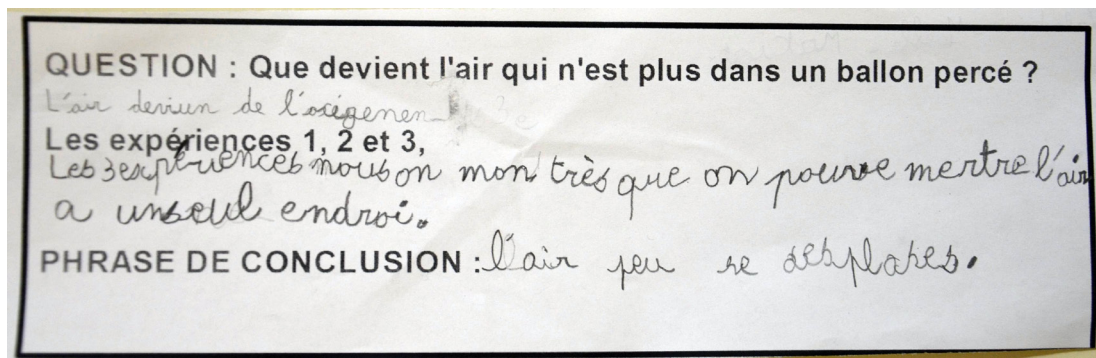 QUESTION : Que devient l'air qui n'est plus dans un ballon percé ?
L'air deviun de l'oxégenen
Les expériences 1, 2 et 3,
Les 3 expériences nous on mon très que on pouvve mertre l'air
a un seul endroi.
PHRASE DE CONCLUSION : l'air peu se desplases.